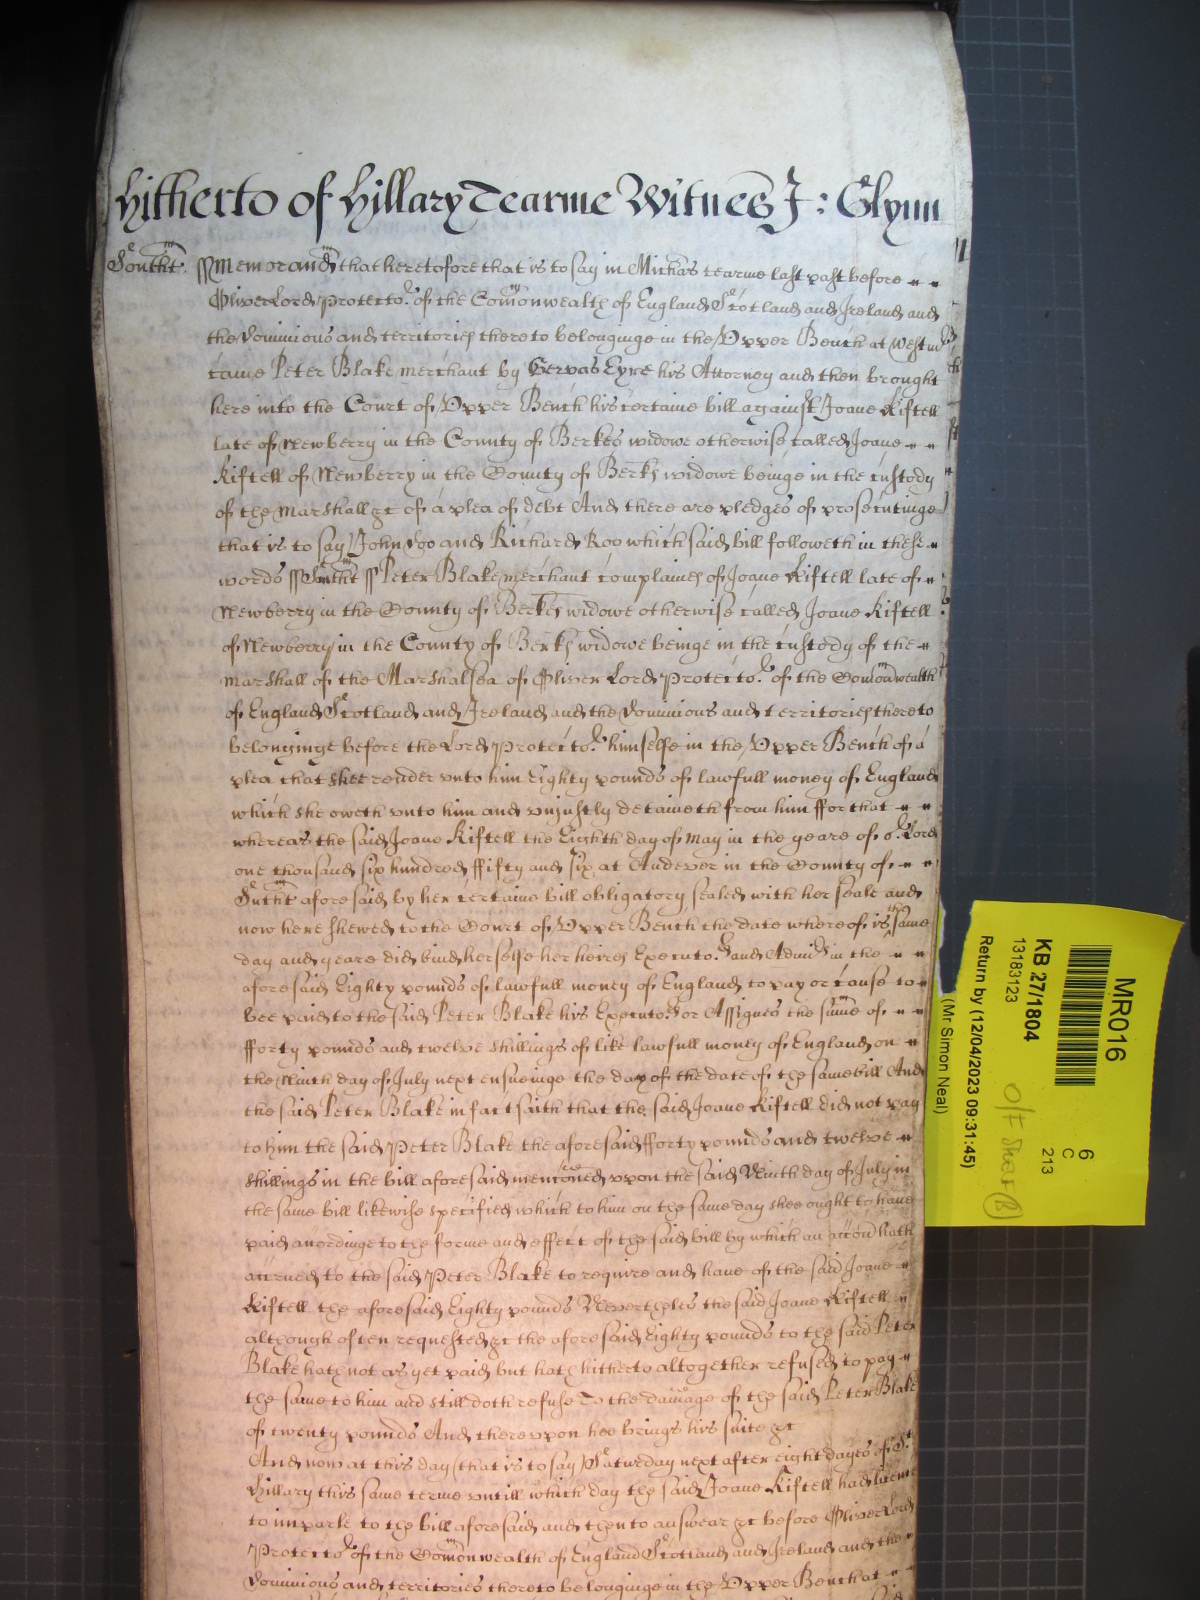 Hitherto of Hillary Tearme Witnes J: Glynn
Southt ss Memorand that heretofore that is to say in Michas tearme last past before
Oliver Lord Protector of the Comonwealth of England Scotland and Ireland and
the Dominions and territories thereto belonginge in the Upper Bench at Westm
came Peter Blake merchant by Gervas Eyre his Attorney and then brought
here into the Court of Upper Bench his certaine bill against Joane Kiftell
late of Newberry in the County of Berkes widowe otherwise called Joane
Kiftell of Newberry in the County of Berks widowe beinge in the custody
of the Marshall &c of a plea of debt And there are pledges of prosecutinge
that is to say John Doo and Richard Roo which said bill followeth in these
words ss Southt ss Peter Blake merchant complaines of Joane Kiftell late of
Newberry in the County of Berkes widowe otherwise called Joane Kiftell
of Newberry in the County of Berks widowe beinge in the custody of the
Marshall of the Marshalsea of Oliver Lord Protector of the Comonwealth
of England Scotland and Ireland and the Dominions and territories thereto
belonginge before the Lord Protector himselfe in the Upper Bench of a
plea that shee render vnto him Eighty pounds of lawfull money of England
which she oweth vnto him and vnjustly detaineth from him ffor that
whereas the said Joane Kiftell the Eighth day of May in the yeare of or Lord
one thousand six hundred ffifty and six at Andever in the County of
Sutht aforesaid by her certaine bill obligatory sealed with her seale and
now here shewed to the Court of Upper Bench the date whereof is the same
day and yeare did bind herselfe her heires Executors and Admrs in the
aforesaid Eighty pounds of lawfull money of England to pay or cause to
bee paid to the said Peter Blake his Executors or Assignes the sume of
fforty pounds and twelve shillings of like lawfull money of England on
the Ninth day of July next ensueinge the day of the date of the same bill And
the said Peter Blake in fact saith that the said Joane Kiftell did not pay
to him the said Peter Blake the aforesaid fforty pounds and twelve
shillings in the bill aforesaid menconed vpon the said Ninth day of July in
the same bill likewise specified which to him on the same day shee ought to have
paid accordinge to the forme and effect of the said bill by which an accon hath
accrued to the said Peter Blake to require and haue of the said Joane
Kiftell the aforesaid Eighty pounds Neverthelesse the said Joane Kiftell
although often requested &c the aforesaid Eighty pounds to the said Peter
Blake hath not as yet paid but hath hitherto altogether refused to pay
the same to him and still doth refuse To the damage of the said Peter Blake
of twenty pounds And therevpon hee brings his suite &c
And now at this day that is to say Saturday next after eight dayes of St
Hillary this same terme vntill which day the said Joane Kiftell had licence
to imparle to the bill aforesaid and then to answear &c before Oliver Lord
Protector of the Comonwealth of England Scotland and Ireland and the
Dominions and territories thereto belonginge in the Upper Bench at
MR016
6
C
213
KB 27/1804
13183123
Return by (12/04/2023 09:31:45)
(Mr Simon Neal)